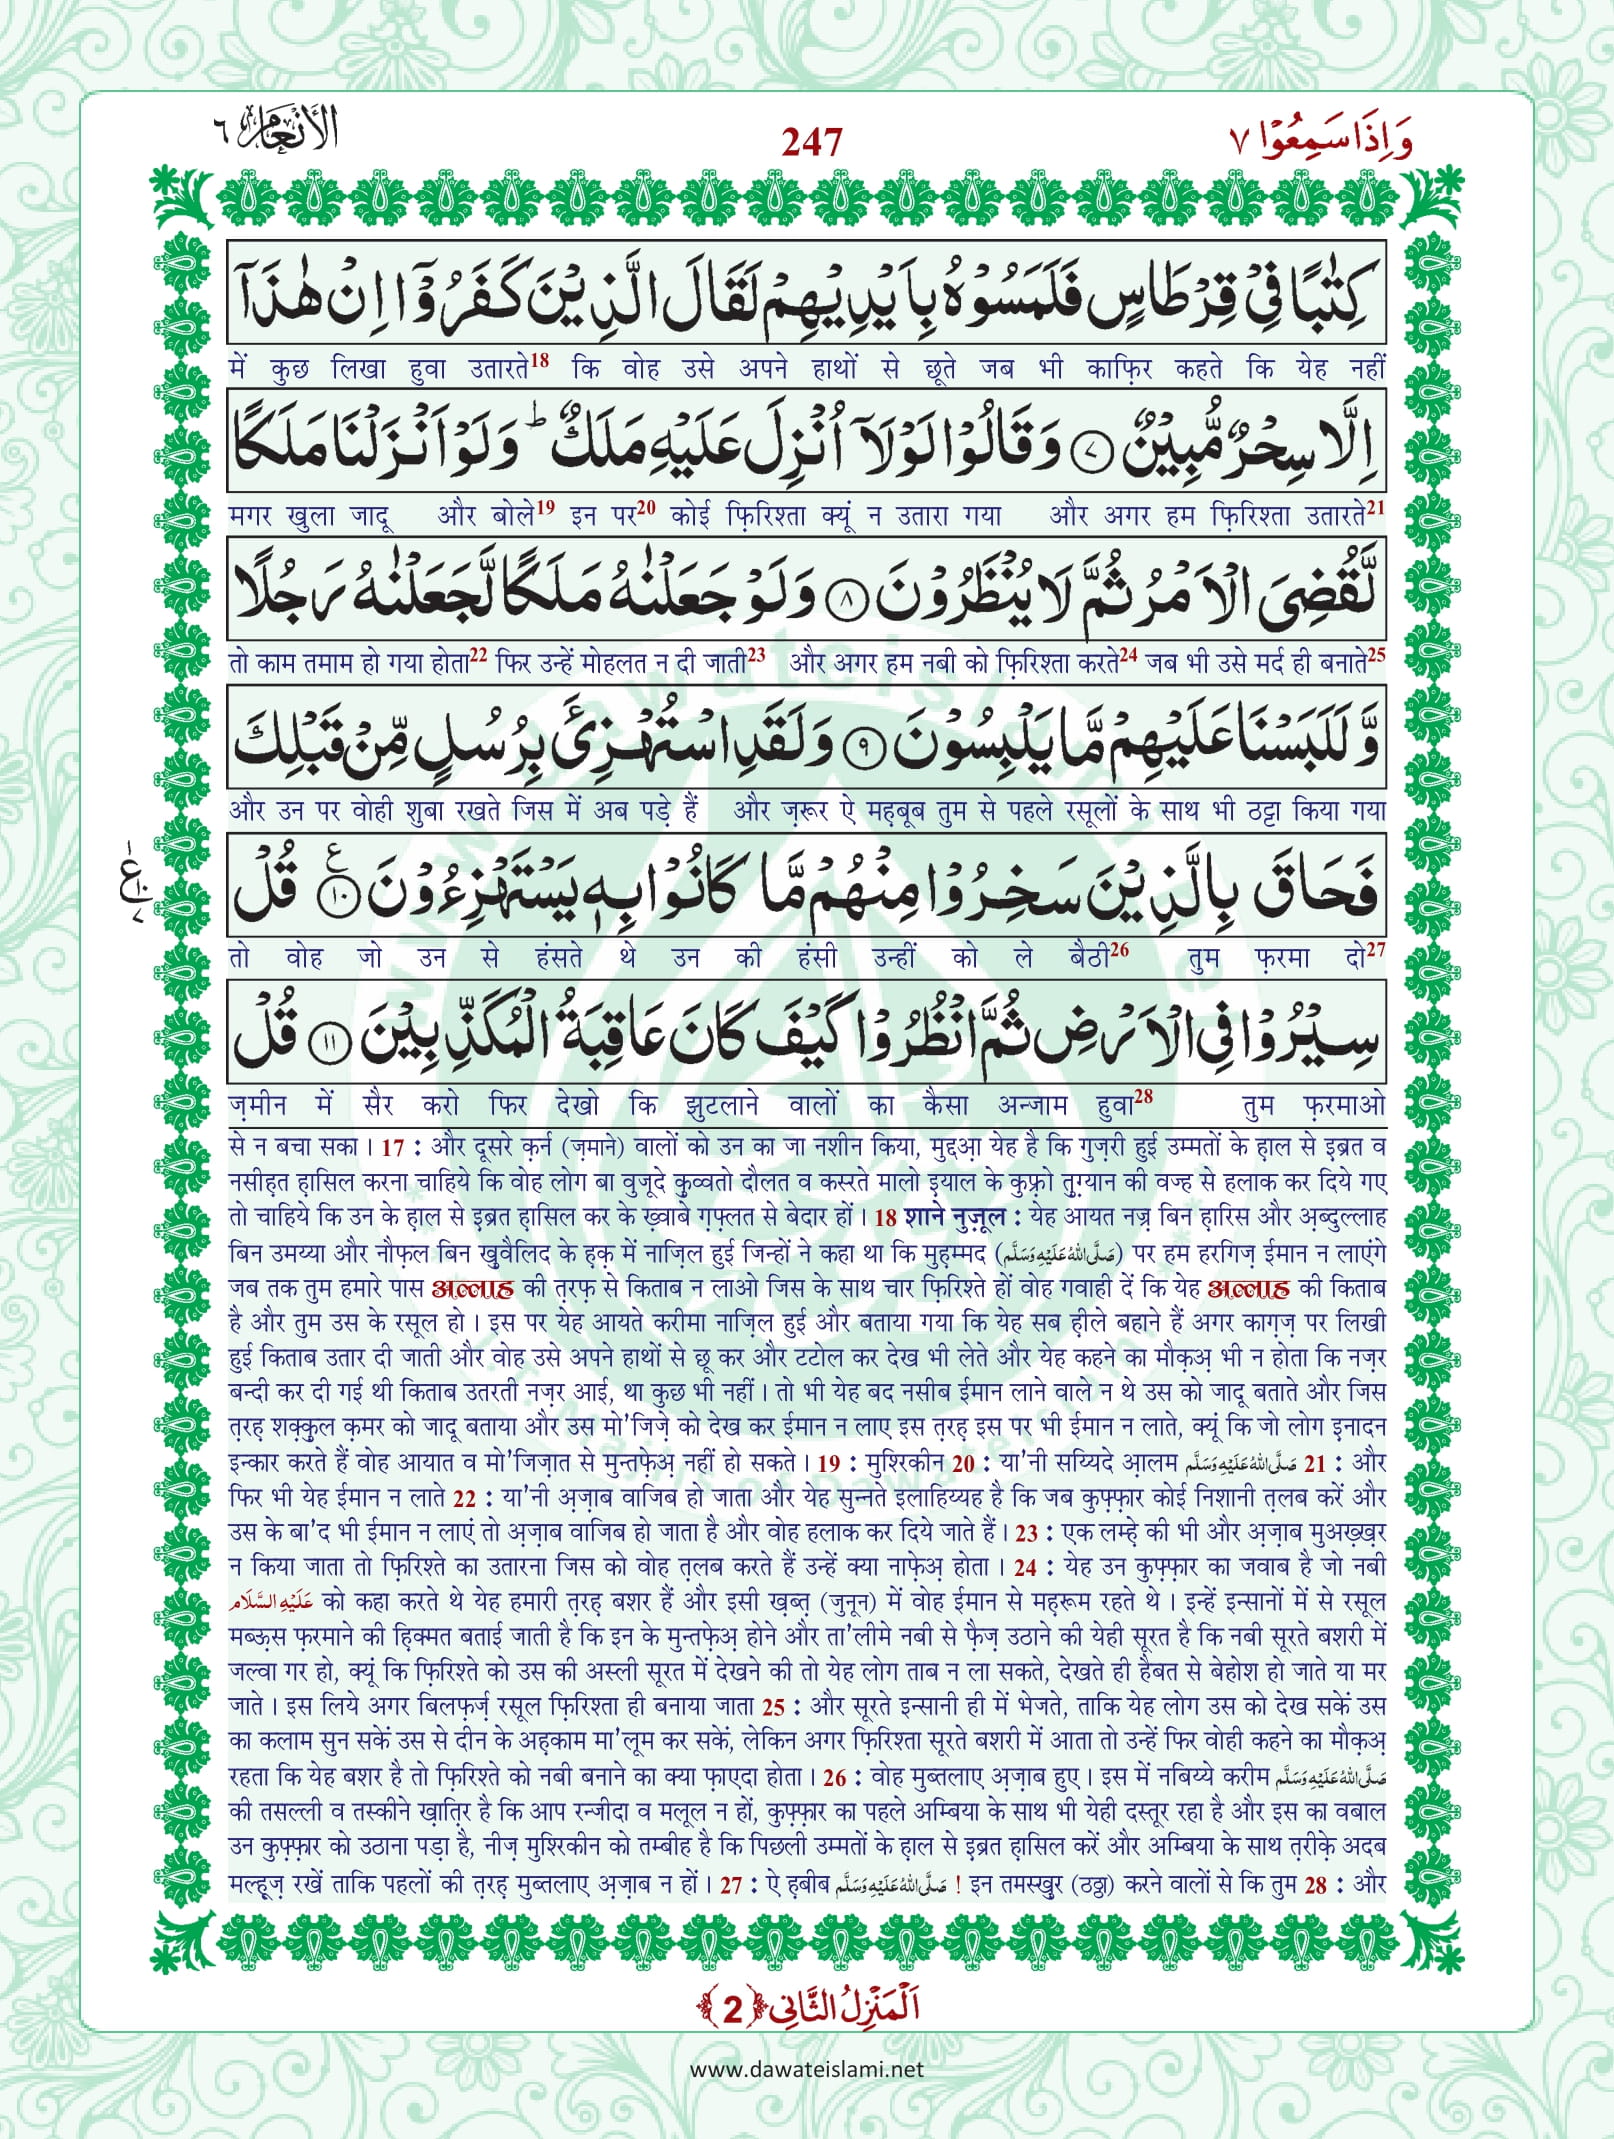 وَاِذَا سَمِعُوْا ٧
247
الْاَنْعَام ٦
كِتٰبًا فِیْ قِرْطَاسٍ فَلَمَسُوْهُ بِاَیْدِیْهِمْ لَقَالَ الَّذِیْنَ كَفَرُوْۤا اِنْ هٰذَاۤ
में कुछ लिखा हुवा उतारते18 कि वोह उसे अपने हाथों से छूते जब भी काफ़िर कहते कि येह नहीं
اِلَّا سِحْرٌ مُّبِیْنٌ ﴿٧﴾ وَ قَالُوْا لَوْلَاۤ اُنْزِلَ عَلَیْهِ مَلَكٌ ؕ وَ لَوْ اَنْزَلْنَا مَلَكًا
मगर खुला जादू और बोले19 इन पर20 कोई फ़िरिश्ता क्यूं न उतारा गया और अगर हम फ़िरिश्ता उतारते21
لَّقُضِیَ الْاَمْرُ ثُمَّ لَا یُنْظَرُوْنَ ﴿٨﴾ وَ لَوْ جَعَلْنٰهُ مَلَكًا لَّجَعَلْنٰهُ رَجُلًا
तो काम तमाम हो गया होता22 फिर उन्हें मोहलत न दी जाती23 और अगर हम नबी को फ़िरिश्ता करते24 जब भी उसे मर्द ही बनाते25
وَّ لَلَبَسْنَا عَلَیْهِمْ مَّا یَلْبِسُوْنَ ﴿٩﴾ وَ لَقَدِ اسْتُهْزِئَ بِرُسُلٍ مِّنْ قَبْلِكَ
और उन पर वोही शुबा रखते जिस में अब पड़े हैं और ज़रूर ऐ मह़बूब तुम से पहले रसूलों के साथ भी ठट्टा किया गया
فَحَاقَ بِالَّذِیْنَ سَخِرُوْا مِنْهُمْ مَّا كَانُوْا بِهٖ یَسْتَهْزِءُوْنَ ﴿١٠﴾ ع قُلْ
ع ١٠ ٧
तो वोह जो उन से हंसते थे उन की हंसी उन्हीं को ले बैठी26 तुम फ़रमा दो27
سِیْرُوْا فِی الْاَرْضِ ثُمَّ انْظُرُوْا كَیْفَ كَانَ عَاقِبَةُ الْمُكَذِّبِیْنَ ﴿١١﴾ قُلْ
ज़मीन में सैर करो फिर देखो कि झुटलाने वालों का कैसा अन्जाम हुवा28 तुम फ़रमाओ
से न बचा सका । 17 : और दूसरे क़र्न (ज़माने) वालों को उन का जा नशीन किया, मुद्दआ़ येह है कि गुज़री हुई उम्मतों के ह़ाल से इ़ब्रत व
नसीह़त ह़ासिल करना चाहिये कि वोह लोग बा वुजूदे क़ुव्वतो दौलत व कस्रते मालो इ़याल के कुफ़्रो तुग़्यान की वज्ह से हलाक कर दिये गए
तो चाहिये कि उन के ह़ाल से इ़ब्रत ह़ासिल कर के ख़्वाबे ग़फ़्लत से बेदार हों । 18 शाने नुज़ूल : येह आयत नज़्र बिन ह़ारिस और अ़ब्दुल्लाह
बिन उमय्या और नौफ़ल बिन ख़ुवैलिद के ह़क़ में नाज़िल हुई जिन्हों ने कहा था कि मुह़म्मद (صَلَّى اللهُ عَلَيْهِ وَسَلَّم) पर हम हरगिज़ ईमान न लाएंगे
जब तक तुम हमारे पास अल्लाह की त़रफ़ से किताब न लाओ जिस के साथ चार फ़िरिश्ते हों वोह गवाही दें कि येह अल्लाह की किताब
है और तुम उस के रसूल हो । इस पर येह आयते करीमा नाज़िल हुई और बताया गया कि येह सब ह़ीले बहाने हैं अगर काग़ज़ पर लिखी
हुई किताब उतार दी जाती और वोह उसे अपने हाथों से छू कर और टटोल कर देख भी लेते और येह कहने का मौक़अ़ भी न होता कि नज़र
बन्दी कर दी गई थी किताब उतरती नज़र आई, था कुछ भी नहीं । तो भी येह बद नसीब ईमान लाने वाले न थे उस को जादू बताते और जिस
त़रह़ शक़्क़ुल क़मर को जादू बताया और उस मो'जिज़े को देख कर ईमान न लाए इस त़रह़ इस पर भी ईमान न लाते, क्यूं कि जो लोग इनादन
इन्कार करते हैं वोह आयात व मो'जिज़ात से मुन्तफ़ेअ़ नहीं हो सकते । 19 : मुश्रिकीन 20 : या'नी सय्यिदे आ़लम صَلَّى اللهُ عَلَيْهِ وَسَلَّم 21 : और
फिर भी येह ईमान न लाते 22 : या'नी अ़ज़ाब वाजिब हो जाता और येह सुन्नते इलाहिय्यह है कि जब कुफ़्फ़ार कोई निशानी त़लब करें और
उस के बा'द भी ईमान न लाएं तो अ़ज़ाब वाजिब हो जाता है और वोह हलाक कर दिये जाते हैं । 23 : एक लम्ह़े की भी और अ़ज़ाब मुअख़्ख़र
न किया जाता तो फ़िरिश्ते का उतारना जिस को वोह त़लब करते हैं उन्हें क्या नाफ़ेअ़ होता । 24 : येह उन कुफ़्फ़ार का जवाब है जो नबी
عَلَيْهِ السَّلَام को कहा करते थे येह हमारी त़रह़ बशर हैं और इसी ख़ब्त़ (जुनून) में वोह ईमान से मह़रूम रहते थे । इन्हें इन्सानों में से रसूल
मब्ऊ़स फ़रमाने की ह़िक्मत बताई जाती है कि इन के मुन्तफ़ेअ़ होने और ता'लीमे नबी से फ़ैज़ उठाने की येही सूरत है कि नबी सूरते बशरी में
जल्वा गर हो, क्यूं कि फ़िरिश्ते को उस की अस्ली सूरत में देखने की तो येह लोग ताब न ला सकते, देखते ही हैबत से बेहोश हो जाते या मर
जाते । इस लिये अगर बिलफ़र्ज़ रसूल फ़िरिश्ता ही बनाया जाता 25 : और सूरते इन्सानी ही में भेजते, ताकि येह लोग उस को देख सकें उस
का कलाम सुन सकें उस से दीन के अह़काम मा'लूम कर सकें, लेकिन अगर फ़िरिश्ता सूरते बशरी में आता तो उन्हें फिर वोही कहने का मौक़अ़
रहता कि येह बशर है तो फ़िरिश्ते को नबी बनाने का क्या फ़ाएदा होता । 26 : वोह मुब्तलाए अ़ज़ाब हुए । इस में नबिय्ये करीम صَلَّى اللهُ عَلَيْهِ وَسَلَّم
की तसल्ली व तस्कीने ख़ात़िर है कि आप रन्जीदा व मलूल न हों, कुफ़्फ़ार का पहले अम्बिया के साथ भी येही दस्तूर रहा है और इस का वबाल
उन कुफ़्फ़ार को उठाना पड़ा है, नीज़ मुश्रिकीन को तम्बीह है कि पिछली उम्मतों के ह़ाल से इ़ब्रत ह़ासिल करें और अम्बिया के साथ त़रीक़े अदब
मल्ह़ूज़ रखें ताकि पहलों की त़रह़ मुब्तलाए अ़ज़ाब न हों । 27 : ऐ ह़बीब صَلَّى اللهُ عَلَيْهِ وَسَلَّم ! इन तमस्ख़ुर (ठठ्ठा) करने वालों से कि तुम 28 : और
اَلْمَنْزِلُ الثَّانِی ﴿2﴾
www.dawateislami.net